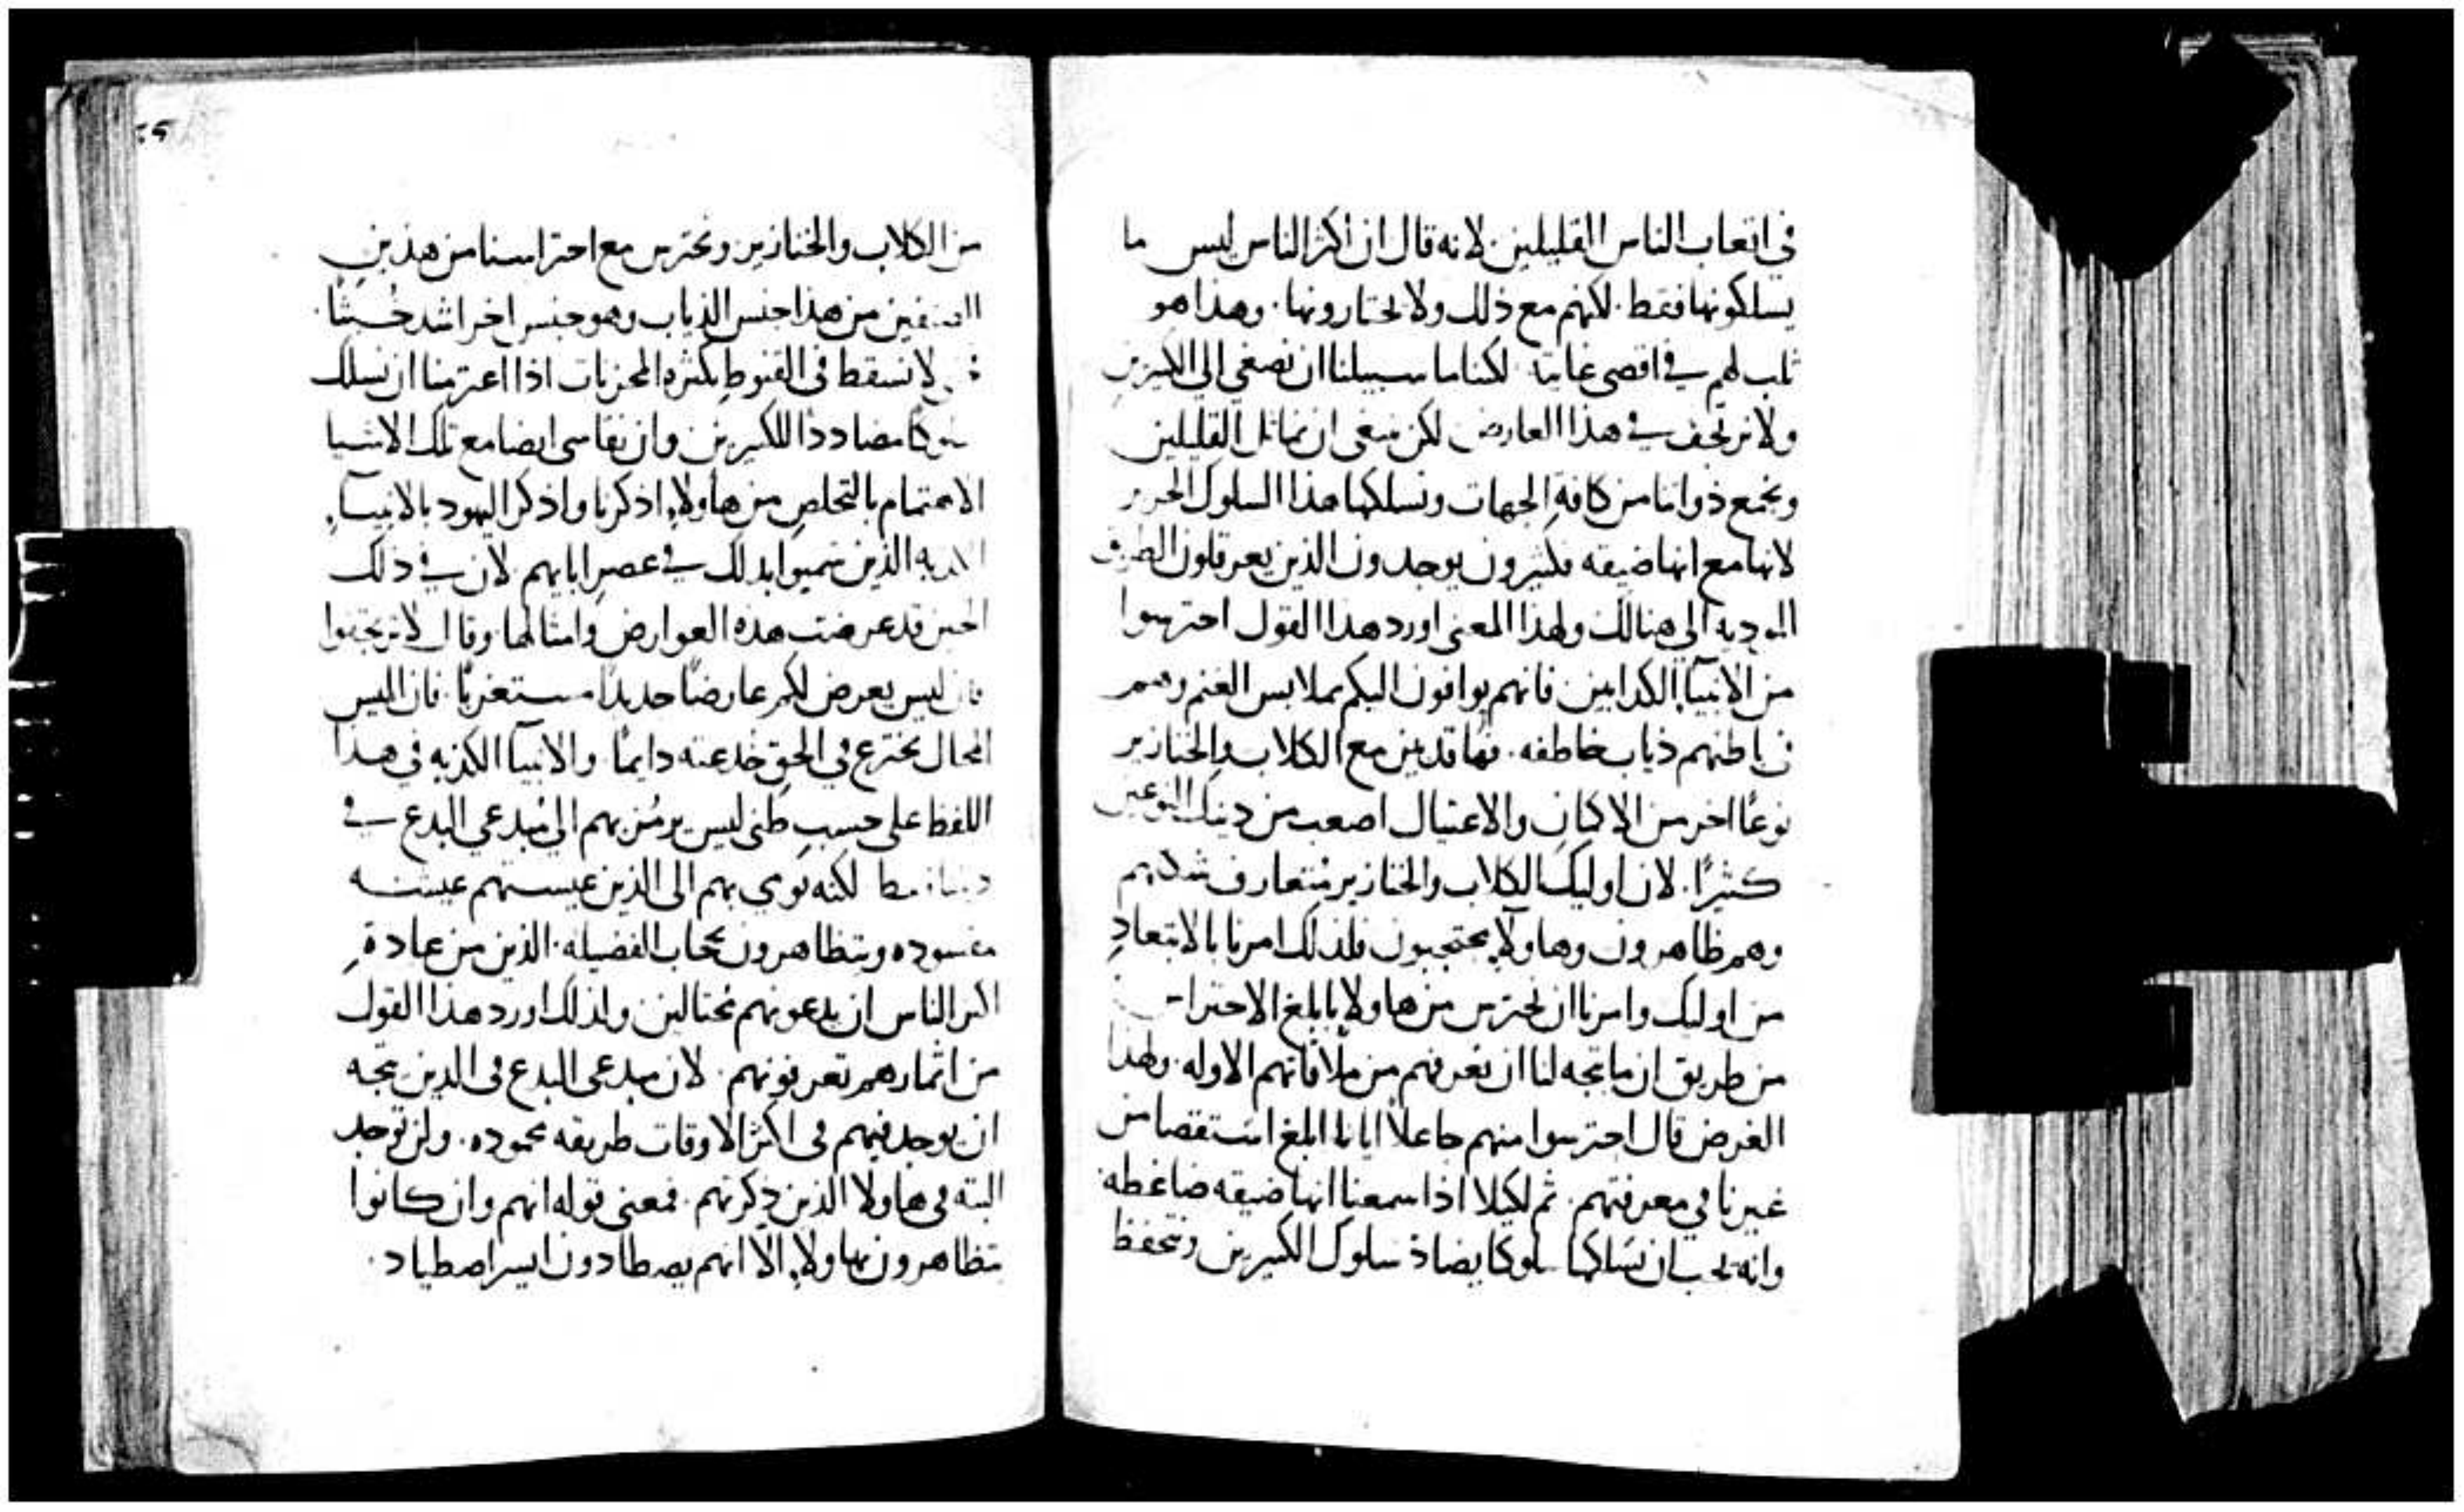 في اتعاب الناس القليلين لانه قال ان اكثر الناس ليس ما
يسلكونها فقط. لكنهم مع ذلك ولا يختارونها. وهذا هو
ثلب لهم في اقصى غايته لكننا ما سبيلنا ان نصغي الى الكثيرين
ولا نرتجف في هذا العارض لكن ينبغي ان نماثل القليلين
ونجمع ذواتنا من كافة الجهات ونسلكها هذا السلوك
لانها مع انها ضيقه فكثيرون يوجدون الذين يعرقلون الطريق
الموديه الى هنالك ولهذا المعنى اورد هذا القول احترسوا
من الانبياء الكدابين فانهم يوافون اليكم بملابس الغنم وهم
في باطنهم ذياب خاطفه. فها قد بين مع الكلاب والخنازير
نوعًا اخر من الاكمان والاغتيال اصعب من دينك النوعين
كثيرًا. لان اوليك الكلاب والخنازير متعارف شكهم
وهم ظاهرون وهاولآء محتجبون فلذلك امرنا بالابتعاد
من اوليك وامرنا ان نحترس من هاولاء بابلغ الاحتراس
من طريق ان ما يتجه لنا ان نعرفهم من ملاقاتهم الاوله. ولهذا
الغرض قال احترسوا منهم جاعلاً ايانا ابلغ استقصا من
غيرنا في معرفتهم. ثم لكيلا اذا سمعنا انها ضيقه ضاغطه.
وانه يجب ان نسلكها سلوكا يضاد سلوك الكثيرين ونتحفظ
٤٩
من الكلاب والخنازير ونحترس مع احتراسنا من هذين
الصنفين من هذا جنس الذياب وهو جنس اخر اشد خبثًا.
لا نسقط في القنوط بكثرة المحزنات اذا اعتزمنا ان نسلك
سلوكا مضاددا للكثيرين وان نقاسي ايضا مع تلك الاشيا
الاهتمام بالتخلص من هاولاء اذكرنا واذكر اليهود بالانبياء
الكدبه الذين سميوا بدلك في عصر ابايهم لان في دلك
الحين قد عرضت هذه العوارض وامثالها. وقال لا ترتجفوا
فان ليس يعرض لكم عارضًا جديدًا مستغربًا. فان ابليس
المحال يخترع في الحق خدعته دايمًا والانبيا الكذبه في هذا
اللفظ على حسب ظني ليس يرمز بهم الى مبدعي البدع في
لكنه نوي بهم الى الذين عيشتهم عيشه
مفسوده ويتظاهرون بحجاب الفضيله. الذين من عادة
اكثر الناس ان يدعونهم محتالين ولذلك اورد هذا القول
من اثمارهم تعرفونهم. لان مبدعي البدع في الدين يتجه
ان يوجد فيهم في اكثر الاوقات طريقه محموده. ولن توجد
البته في هاولا الذين ذكرتهم. فمعنى قوله انهم وان كانوا
يتظاهرون بهاولاء إلّا انهم يصطادون ايسر اصطياد.